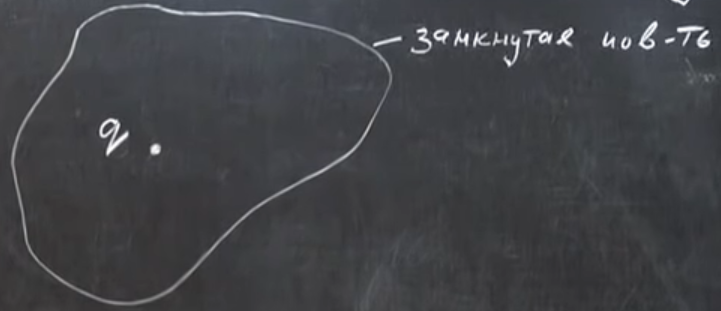 замкнутая пов-ть
q